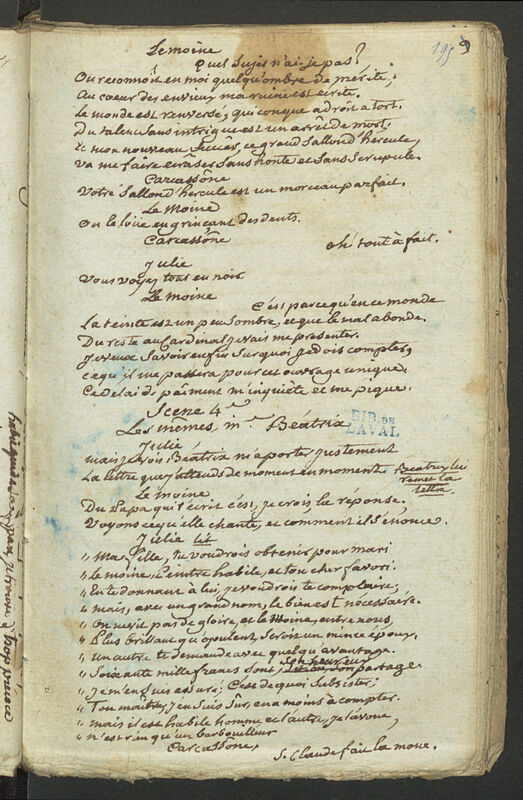 195 9
Lemoine
quel sujet n'ai-je pas?
On reconnoit en moi quelqu'ombre de mérite;
Au coeur des envieux ma ruine est écrite.
Le monde est renversé, quiconque a droit a tort.
Du talent sans intrigue est un arrêt de mort.
& mon nouveau succès, ce grand Sallon d'hercule,
va me faire écraser sans honte et sans scrupule.
Carcassône
Votre Sallon d'hercule est un morceau parfait.
Le Moine
On le loüe en grinçant des dents.
Carcassône
oh! tout à fait.
Julie
Vous voyez tout en noir.
Le moine
C'est parce qu'en ce monde
La teinte est un peu sombre, et que le mal abonde.
Du reste au Cardinal je vais me présenter.
Je veux savoir enfin sur quoi je dois compter,
ce qu'il me passera pour cet ouvrage unique.
Ce delai de païment m'inquiète et me pique.
Scene 4e
Les mêmes, me Béatrix
BIB. DE
LAVAL
Julie
mais je vois Béatrix m'apporter justement
La lettre que j'attends de moment en moment
Beatrix lui
remet la
lettre
Le moine
Du Papa qui t'écrit c'est, je crois la réponse.
Voyons ce qu'elle chante, et comment il s'énonce.
Julie lit
" Ma fille, tu voudrois obtenir pour mari
" Le moine, Peintre habile, et ton cher favori.
" En te donnant à lui, je voudrois te complaire;
" mais, avec un grand nom, le bien est nécessaire.
" On ne vit pas de gloire, et le Moine, entre nous,
" Plus brillant qu'opulent, seroit un mince epoux,
" un autre te demande avec quelqu'avantage.
" Soixante mille francs sont, son heureux partage.
" Je m'en suis assuré; C'est de quoi subsister;
" Ton maître, j'en suis sûr, en a moins à compter.
" mais il est habile homme et l'autre, je l'avoue,
" n'est rien qu'un barbouilleur
Carcassône,
S. Claude fait la moue.
trop précoce